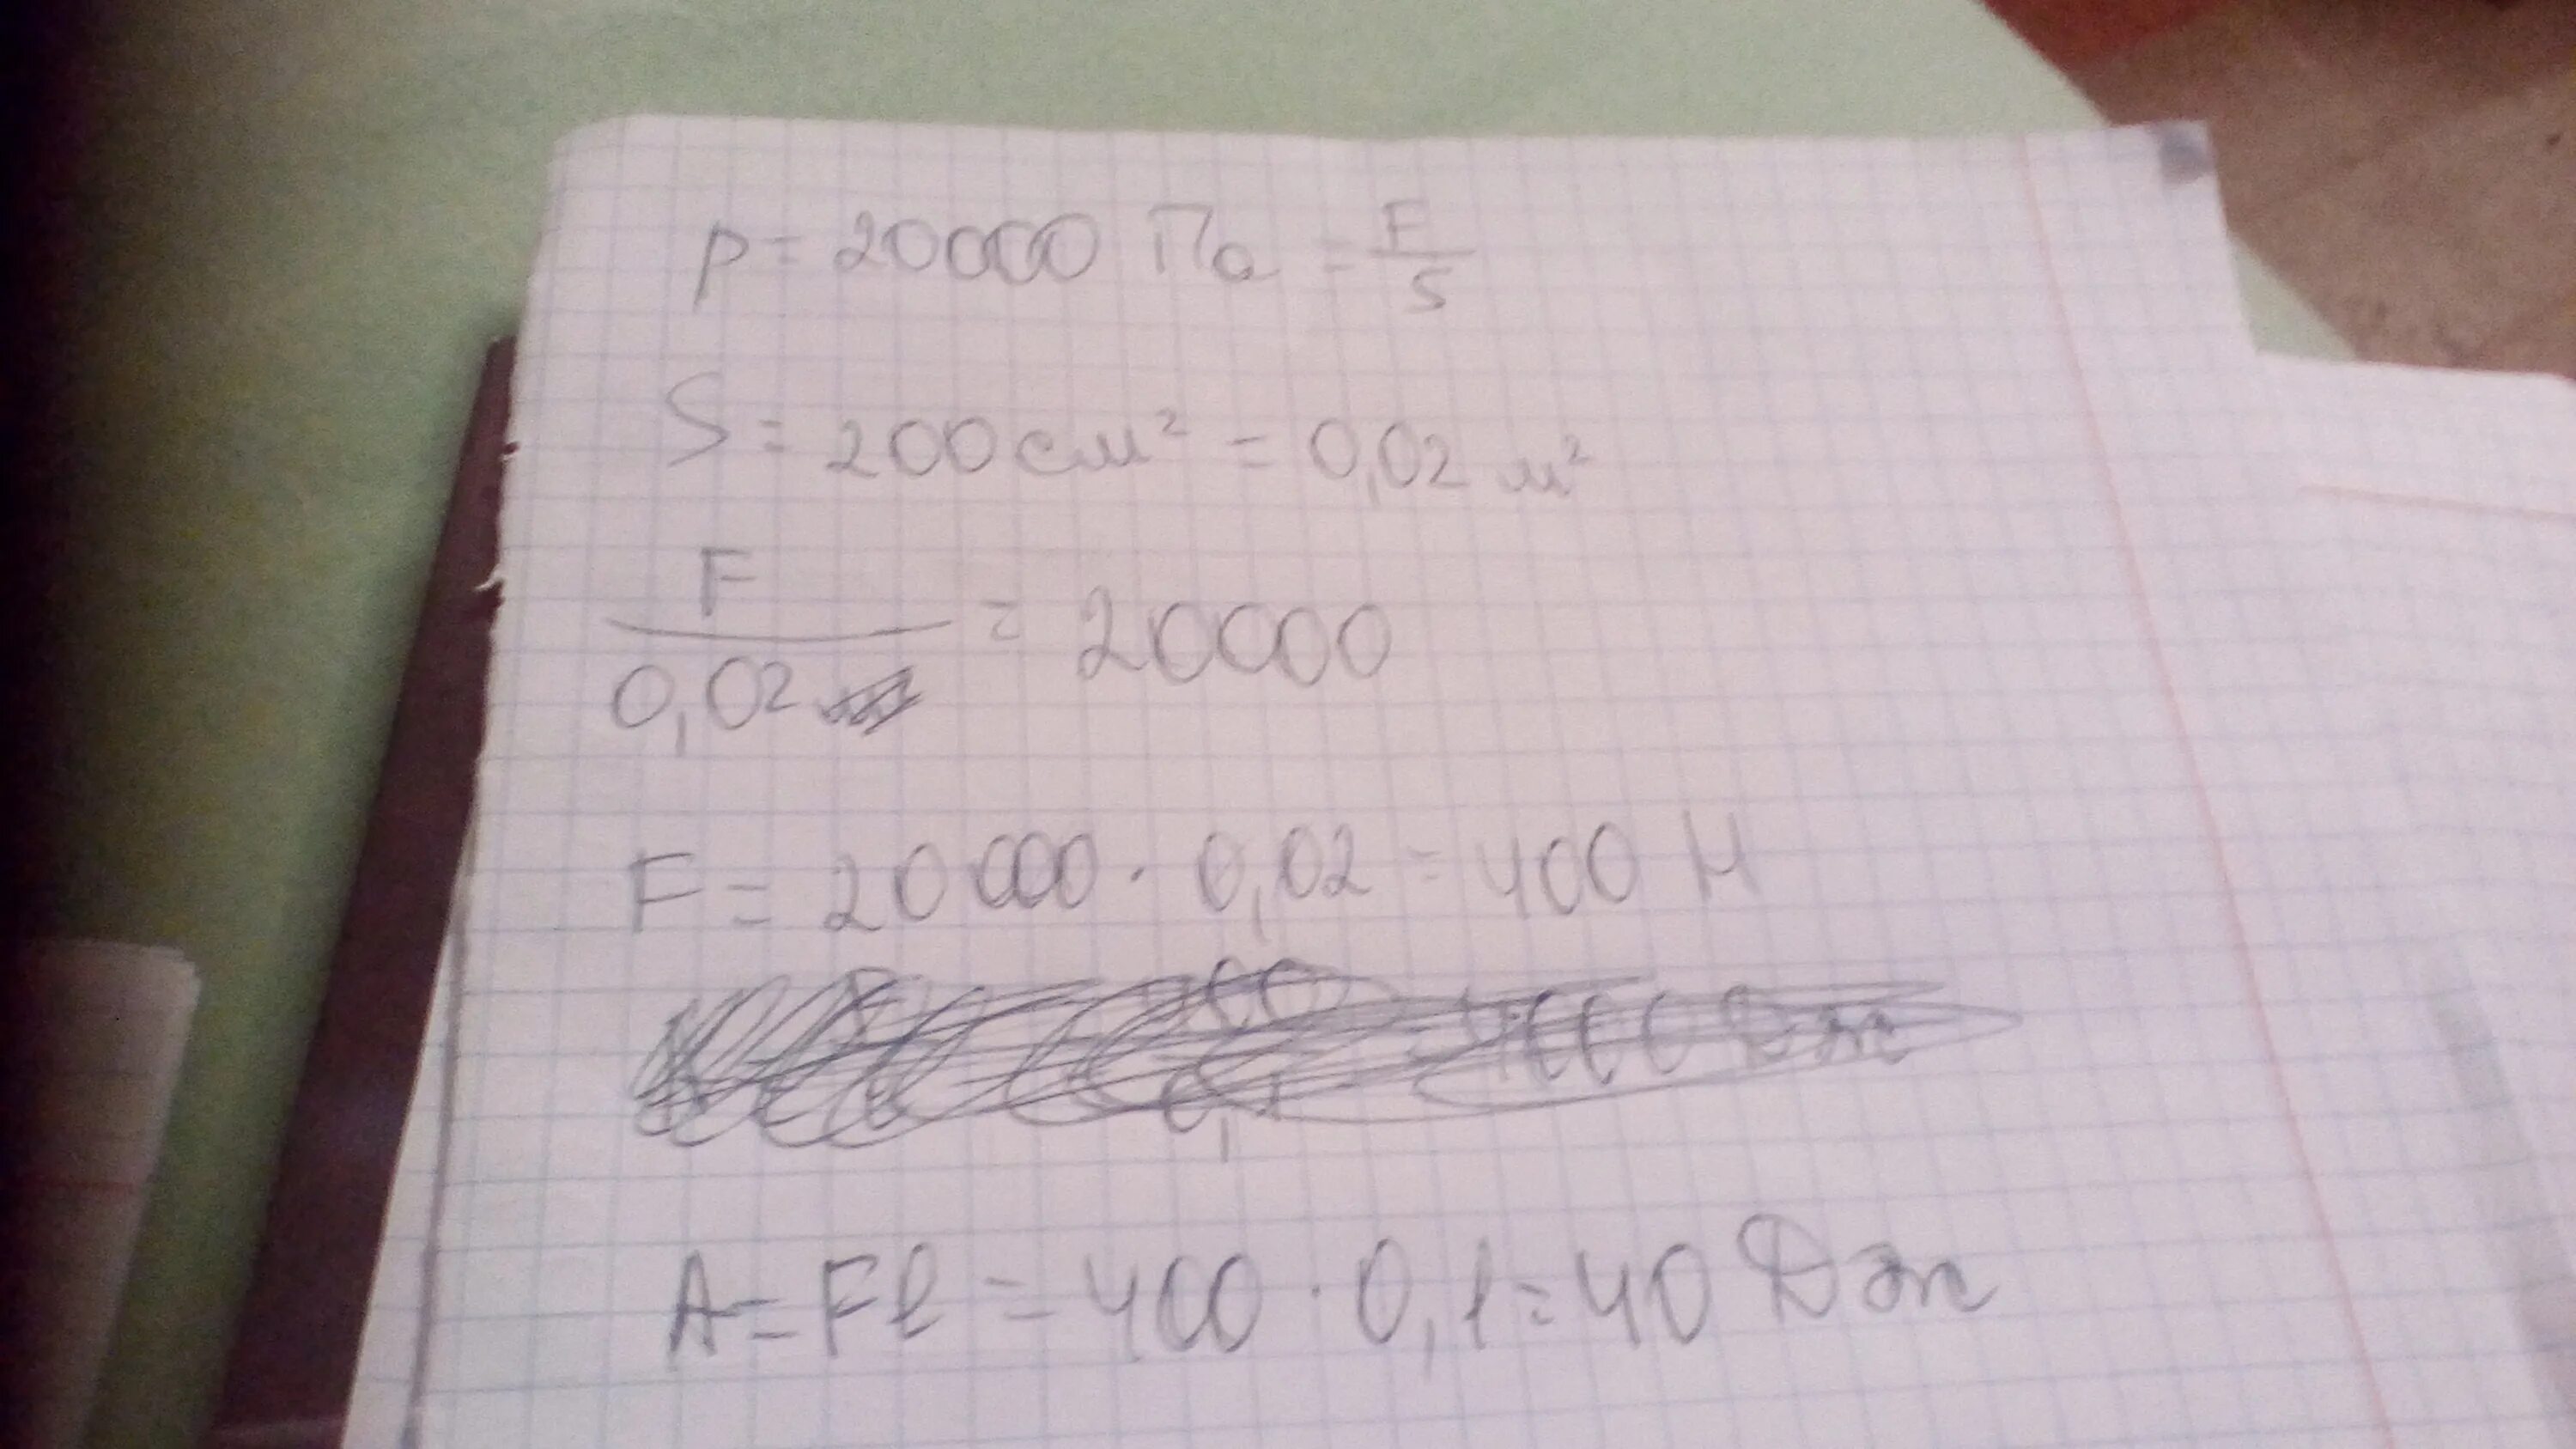 p = 20000 Па = F/S
S = 200 см² = 0,02 м²
F/0,02 = 20000
F = 20000 · 0,02 = 400 Н
A = Fl = 400 · 0,1 = 40 Дж